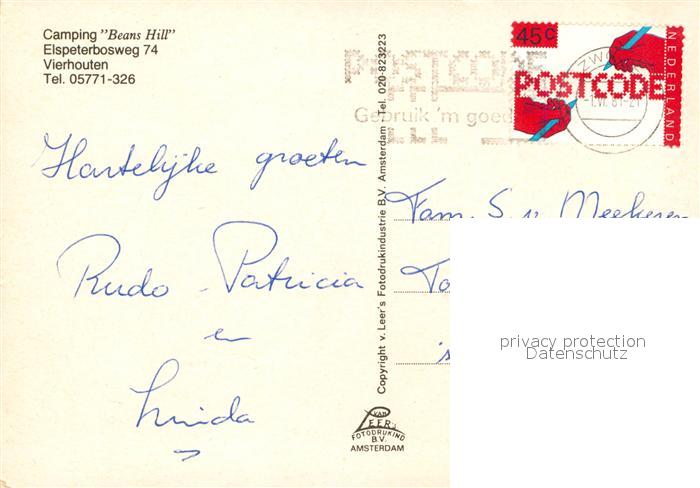 Camping "Beans Hill"
Elspeterbosweg 74
Vierhouten
Tel. 05771-326
Hartelijke groeten
Rudo Patricia
en
Linida
Copyright v. Leer's Fotodrukindustrie B.V. Amsterdam - Tel. 020-823223
VAN
LEER'S
FOTODRUKIND
B.V.
AMSTERDAM
POSTCODE
Gebruik 'm goed
45c
NEDERLAND
POSTCODE
ZWO
-1.VI. 81-21
Fam. S. v. Meekeren
To
's
privacy protection
Datenschutz